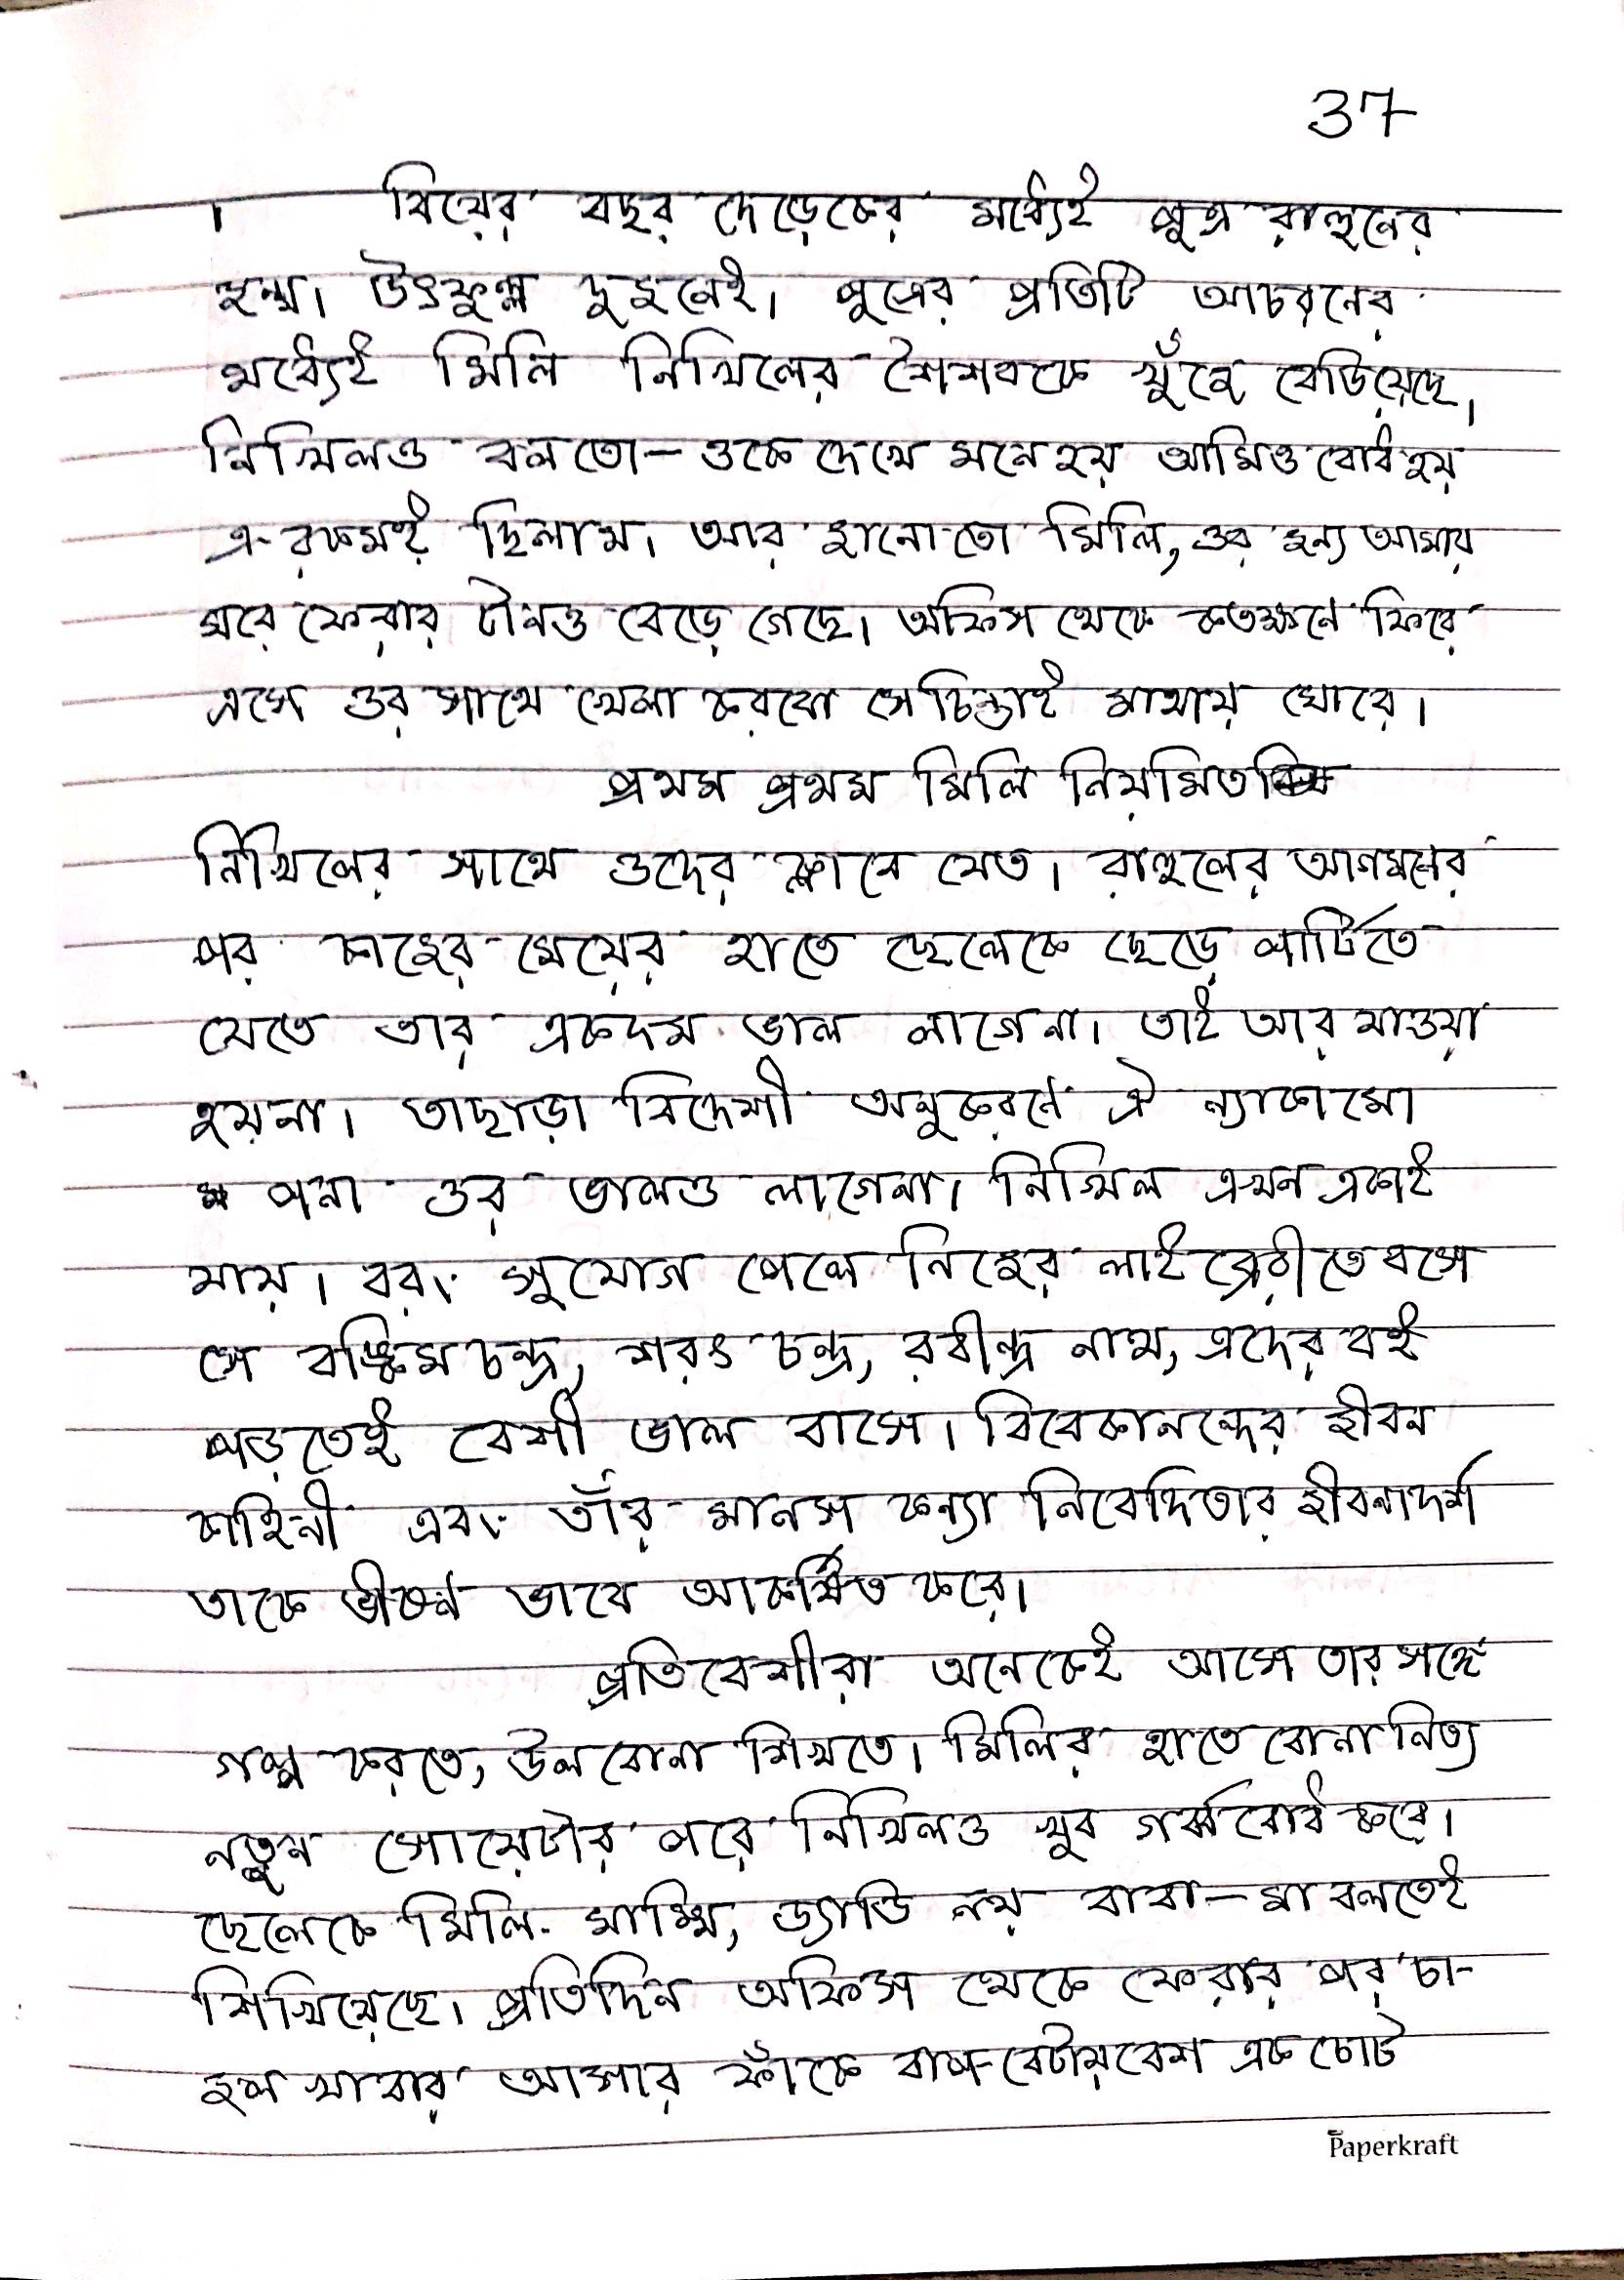 37
। বিয়ের বছর দেড়েকের মধ্যেই পুত্র রাহুলের
জন্ম। উৎফুল্ল দুজনেই। পুত্রের প্রতিটি আচরনের
মধ্যেই মিলি নিখিলের শৈশবকে খুঁজে বেড়িয়েছে।
নিখিলও বলতো - ওকে দেখে মনে হয় আমিও বোধহয়
এ-রকমই ছিলাম। আর জানোতো মিলি, ওর জন্য আমার
ঘরে ফেরার টানও বেড়ে গেছে। অফিস থেকে কতক্ষনে ফিরে
এসে ওর সাথে খেলা করবো সে চিন্তাই মাথায় ঘোরে।
প্রথম প্রথম মিলি নিয়মিত
নিখিলের সাথে ওদের ক্লাবে যেত। রাহুলের আগমনের
পর কাজের মেয়ের হাতে ছেলেকে ছেড়ে পার্টিতে
যেতে তার একদম ভাল লাগেনা। তাই আর যাওয়া
হয়না। তাছাড়া বিদেশী অনুকরনে ঐ ন্যাকামো
পনা ওর ভালও লাগেনা। নিখিল এখন একাই
যায়। বরং সুযোগ পেলে নিজের লাইব্রেরীতে বসে
সে বঙ্কিমচন্দ্র, শরৎ চন্দ্র, রবীন্দ্র নাথ, এদের বই
পড়তেই বেশী ভাল বাসে। বিবেকানন্দের জীবন
কাহিনী এবং তাঁর মানস কন্যা নিবেদিতার জীবনাদর্শ
তাকে ভীষণ ভাবে আকর্ষিত করে।
প্রতিবেশীরা অনেকেই আসে তার সঙ্গে
গল্প করতে, উলবোনা শিখতে। মিলির হাতে বোনা নিত্য
নতুন সোয়েটার পরে নিখিলও খুব গর্ববোধ করে।
ছেলেকে মিলি মাম্মি, ড্যাডি নয় বাবা - মা বলতেই
শিখিয়েছে। প্রতিদিন অফিস থেকে ফেরার পর চা-
জল খাবার আসার ফাঁকে বাপ-বেটায় বেশ এক চোট
Paperkraft